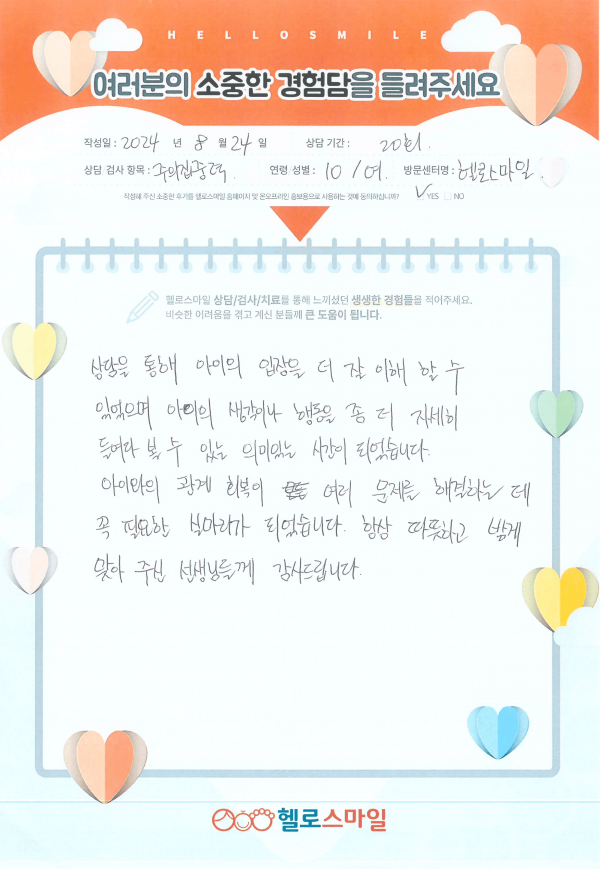 HELLOSMILE
여러분의 소중한 경험담을 들려주세요
작성일 : 2024 년 8 월 24 일 상담 기간 : 20회.
상담 검사 항목 : 주의집중력. 연령 성별 : 10 / 여. 방문센터명 : 헬로스마일.
작성해 주신 소중한 후기를 헬로스마일 홈페이지 및 온오프라인 홍보용으로 사용하는 것에 동의하십니까? ✓ YES □ NO
헬로스마일 상담/검사/치료를 통해 느끼셨던 생생한 경험들을 적어주세요.
비슷한 어려움을 겪고 계신 분들께 큰 도움이 됩니다.
상담을 통해 아이의 입장을 더 잘 이해 할 수
있었으며 아이의 생각이나 행동을 좀 더 자세히
들여다 볼 수 있는 의미있는 시간이 되었습니다.
아이와의 관계 회복이 여러 문제를 해결하는 데
꼭 필요한 실마리가 되었습니다. 항상 따뜻하고 밝게
맞아 주신 선생님들께 감사드립니다.
헬로스마일